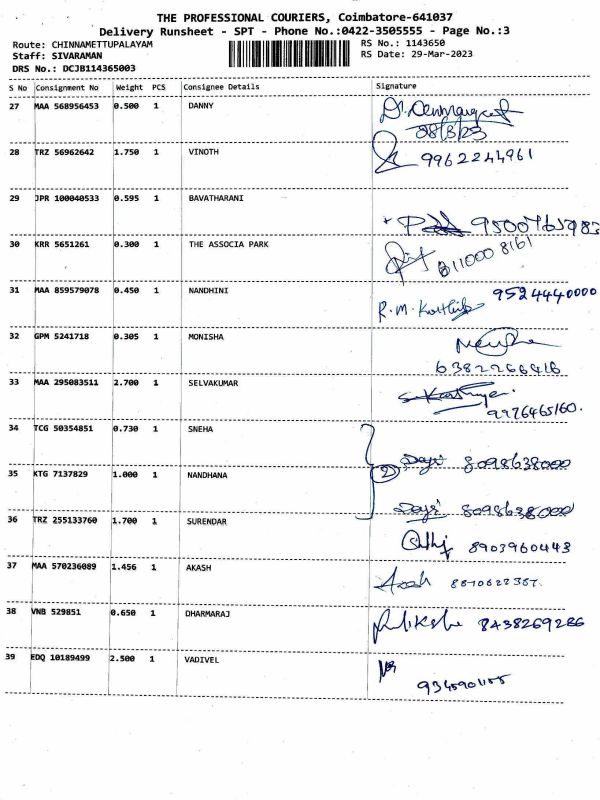 THE PROFESSIONAL COURIERS, Coimbatore-641037
Delivery Runsheet - SPT - Phone No.:0422-3505555 - Page No.:3
Route: CHINNAMETTUPALAYAM RS No.: 1143650
Staff: SIVARAMAN RS Date: 29-Mar-2023
DRS No.: DCJB114365003
S No Consignment No Weight PCS Consignee Details Signature
27 MAA 568956453 0.500 1 DANNY
28 TRZ 56962642 1.750 1 VINOTH 9962244961
29 JPR 100040533 0.595 1 BAVATHARANI
30 KRR 5651261 0.300 1 THE ASSOCIA PARK
31 MAA 859579078 0.450 1 NANDHINI 9524440000
32 GPM 5241718 0.305 1 MONISHA
6382266416
33 MAA 295083511 2.700 1 SELVAKUMAR
9976465160.
34 TCG 50354851 0.730 1 SNEHA
8098638000
35 KTG 7137829 1.000 1 NANDHANA 2
8098638000
36 TRZ 255133760 1.700 1 SURENDAR
8903960443
37 MAA 570236089 1.456 1 AKASH
38 VNB 529851 0.650 1 DHARMARAJ 8438269286
39 EDQ 10189499 2.500 1 VADIVEL